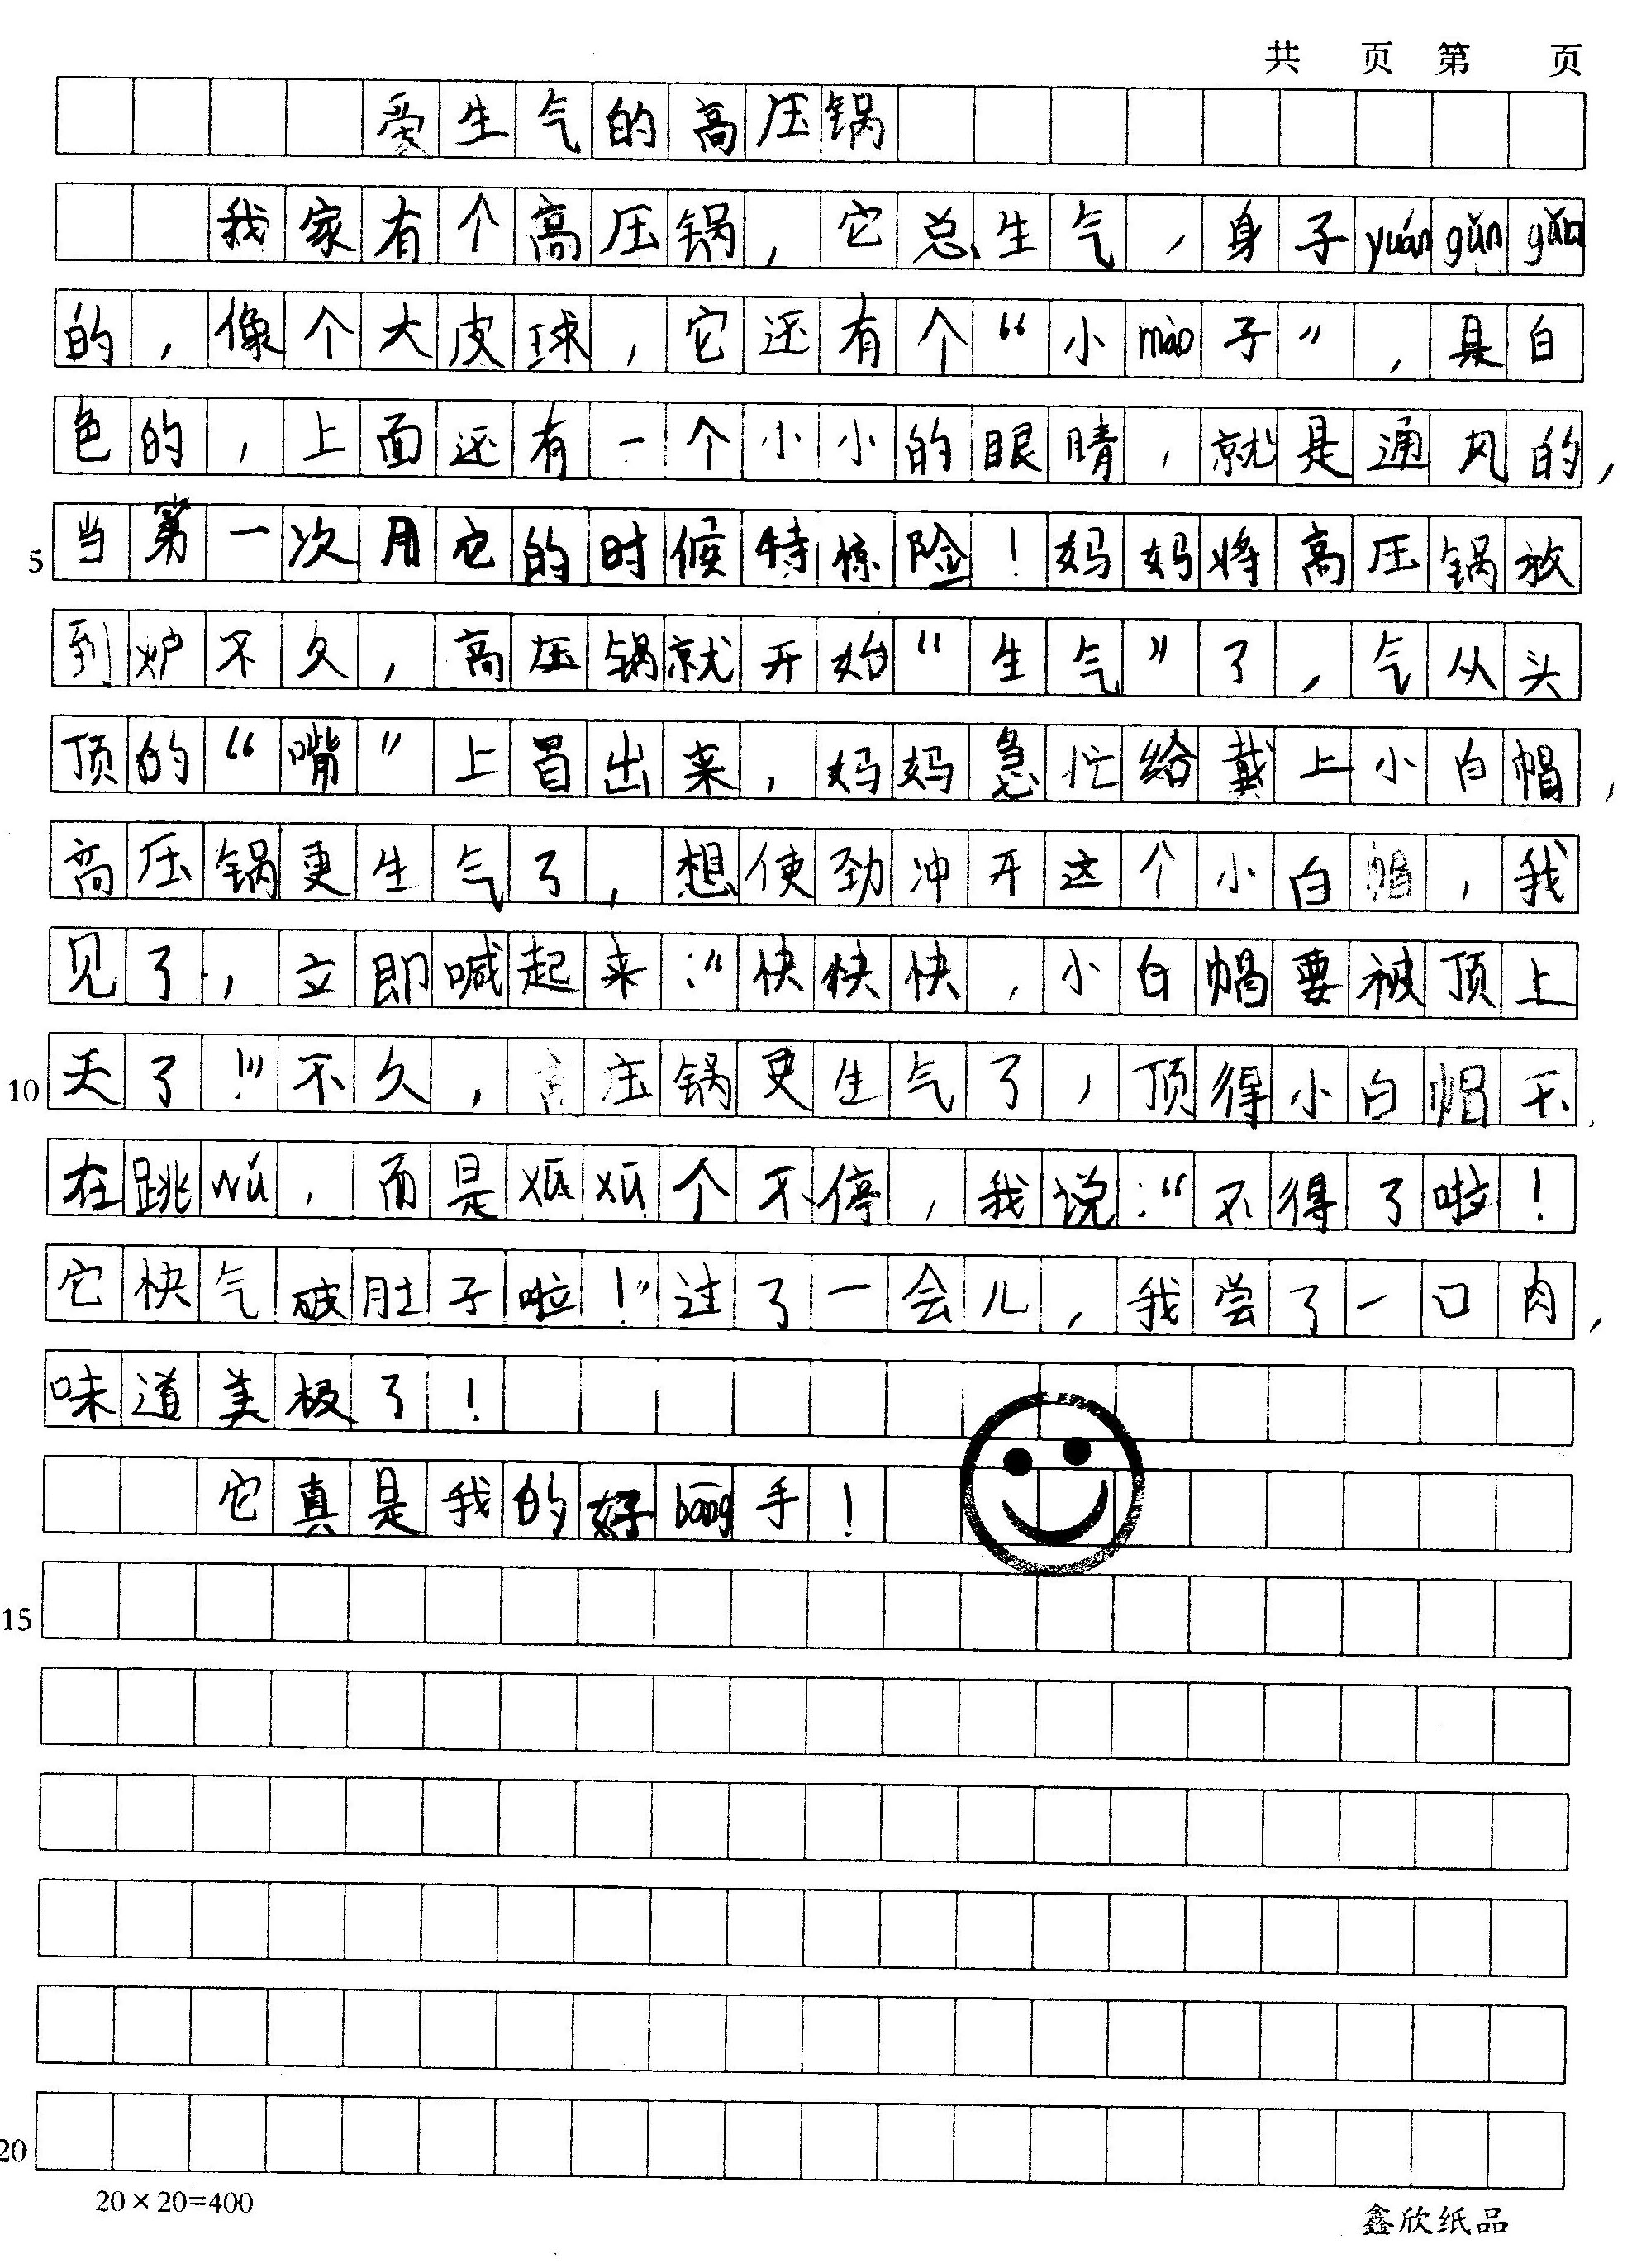 共 页 第 页
爱生气的高压锅
我家有个高压锅,它总生气,身子yuán gǔn gǔn
的,像个大皮球,它还有个“小mào子”,是白
色的,上面还有一个小小的眼睛,就是通风的,
5 当第一次用它的时候特惊险!妈妈将高压锅放
到炉不久,高压锅就开始“生气”了,气从头
顶的“嘴”上冒出来,妈妈急忙给戴上小白帽,
高压锅更生气了,想使劲冲开这个小白帽,我
见了,立即喊起来:“快快快,小白帽要被顶上
10 天了!”不久,高压锅更生气了,顶得小白帽不
在跳wǔ,而是xū xū个不停,我说:“不得了啦!
它快气破肚子啦!”过了一会儿,我尝了一口肉,
味道美极了!
它真是我的好bāng手!
15
20
20×20=400 鑫欣纸品